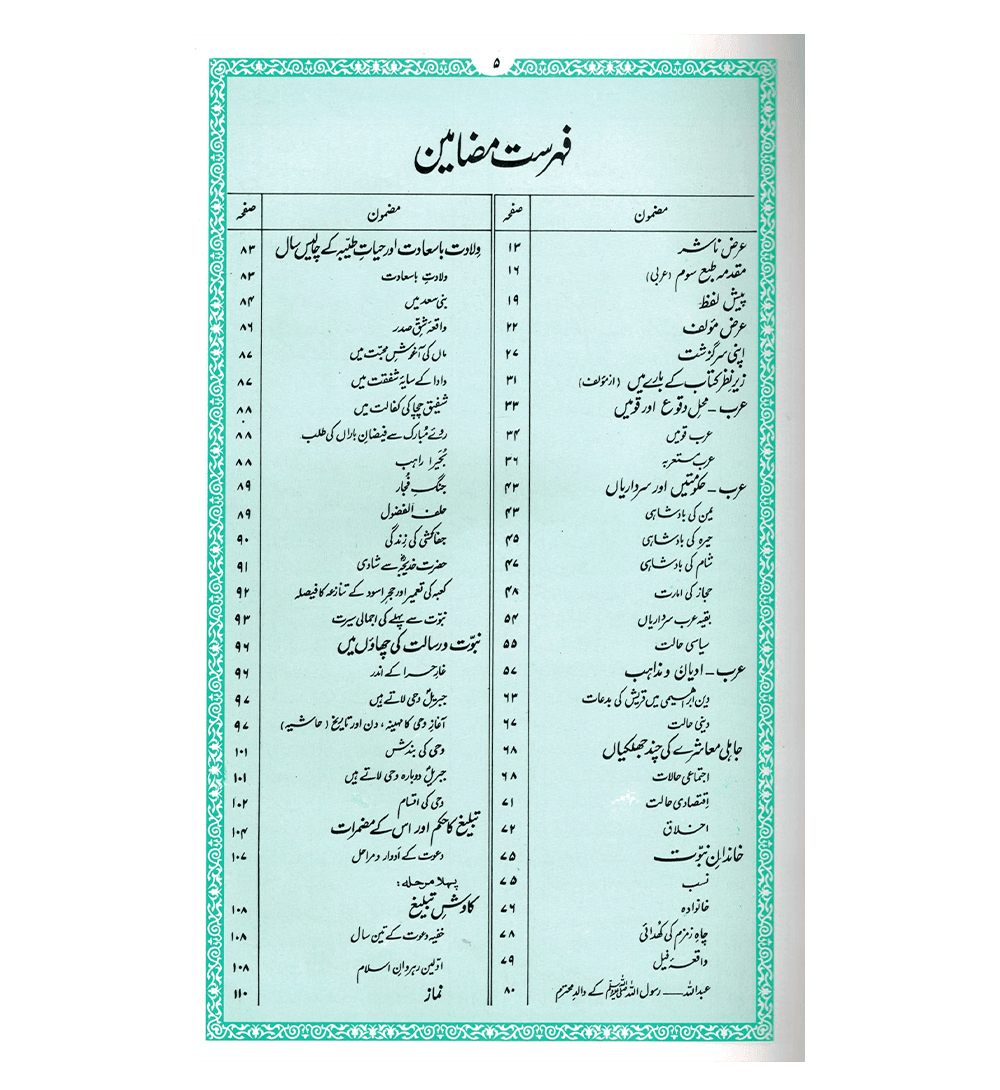 ۵
فہرست مضامین
مضمون صفحہ
عرض ناشر ۱۳
مقدمہ طبع سوم (عربی) ۱۶
پیش لفظ ۱۹
عرض مؤلف ۲۲
اپنی سرگزشت ۲۷
زیرِ نظر کتاب کے بارے میں (از مؤلف) ۳۱
عرب - محلِ وقوع اور قومیں ۳۳
عرب قومیں ۳۴
عرب مستعربہ ۳۶
عرب - حکومتیں اور سرداریاں ۴۳
یمن کی بادشاہی ۴۳
حیرہ کی بادشاہی ۴۵
شام کی بادشاہی ۴۷
حجاز کی امارت ۴۸
بقیہ عرب سرداریاں ۵۴
سیاسی حالت ۵۵
عرب - ادیان و مذاہب ۵۷
دین ابراہیمی میں قریش کی بدعات ۶۳
دینی حالت ۶۷
جاہلی معاشرے کی چند جھلکیاں ۶۸
اجتماعی حالات ۶۸
اقتصادی حالت ۷۱
اخلاق ۷۲
خاندانِ نبوّت ۷۵
نسب ۷۵
خانوادہ ۷۶
چاہِ زمزم کی کھُدائی ۷۸
واقعۂ فیل ۷۹
عبداللہ — رسول اللہ ﷺ کے والدِ محترم ۸۰
مضمون صفحہ
ولادت باسعادت اور حیاتِ طیّبہ کے چالیس سال ۸۳
ولادتِ باسعادت ۸۳
بنی سعد میں ۸۴
واقعۂ شقِّ صدر ۸۶
ماں کی آغوشِ محبّت میں ۸۷
دادا کے سایۂ شفقت میں ۸۷
شفیق چچا کی کفالت میں ۸۸
روئے مُبارک سے فیضانِ باراں کی طلب ۸۸
بُحَیرا راہب ۸۸
جنگِ فُجار ۸۹
حلف الفضول ۸۹
جفاکشی کی زِندگی ۹۰
حضرت خدیجہؓ سے شادی ۹۱
کعبہ کی تعمیر اور حجرِ اسود کے تنازعہ کا فیصلہ ۹۲
نبوّت سے پہلے کی اجمالی سیرت ۹۳
نبوّت و رسالت کی چھاؤں میں ۹۶
غارِ حرا کے اندر ۹۶
جبریلؑ وحی لاتے ہیں ۹۷
آغازِ وحی کا مہینہ، دن اور تاریخ (حاشیہ) ۹۷
وحی کی بندش ۱۰۱
جبریلؑ دوبارہ وحی لاتے ہیں ۱۰۱
وحی کی اقسام ۱۰۲
تبلیغ کا حکم اور اس کے مضمرات ۱۰۴
دعوت کے اَدوار و مراحل ۱۰۷
پہلا مرحلہ:
کاوشِ تبلیغ ۱۰۸
خفیہ دعوت کے تین سال ۱۰۸
اوّلین رہروانِ اسلام ۱۰۸
نماز ۱۱۰